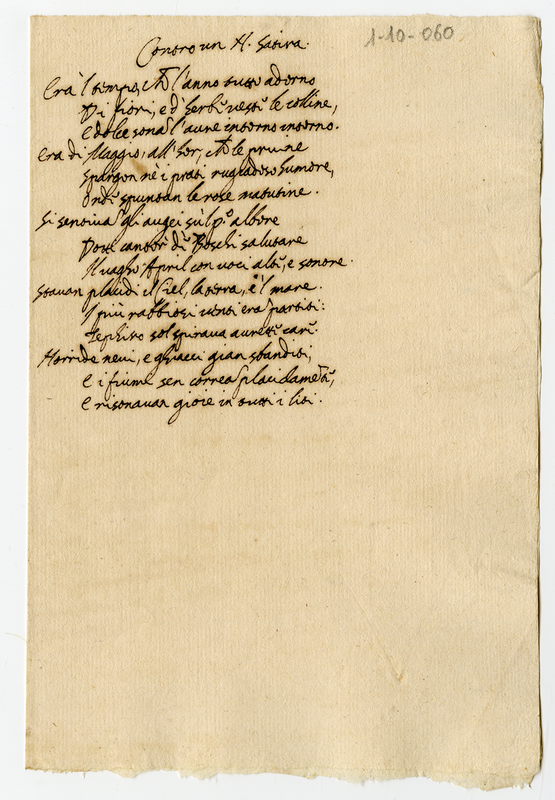 Contro un H. Satira.
1-10-060
Era 'l tempo, ch l'anno tutto adorno
Di fiori, e d'herbe vesti le colline,
E dolce sona l'aure intorno intorno.
Era di Maggio, all'hor, ch le prune
Spargon nè i prati rugiadoso humore,
Onde spuntan le rose matutine.
Si sentiva gli augei sù'l p.º albore
Dotti cantor di Boschi salutare
Il vagho April con voci alte, e sonore.
Stavan placidi il Ciel, la terra, e 'l mare.
I più rabbiosi venti era partiti:
Zephiro sol spirava aurette care.
Horride nevi, e ghiacci gian sbanditi,
E i fiumi sen correa placidamete,
E risonavan gioie in tutti i liti.